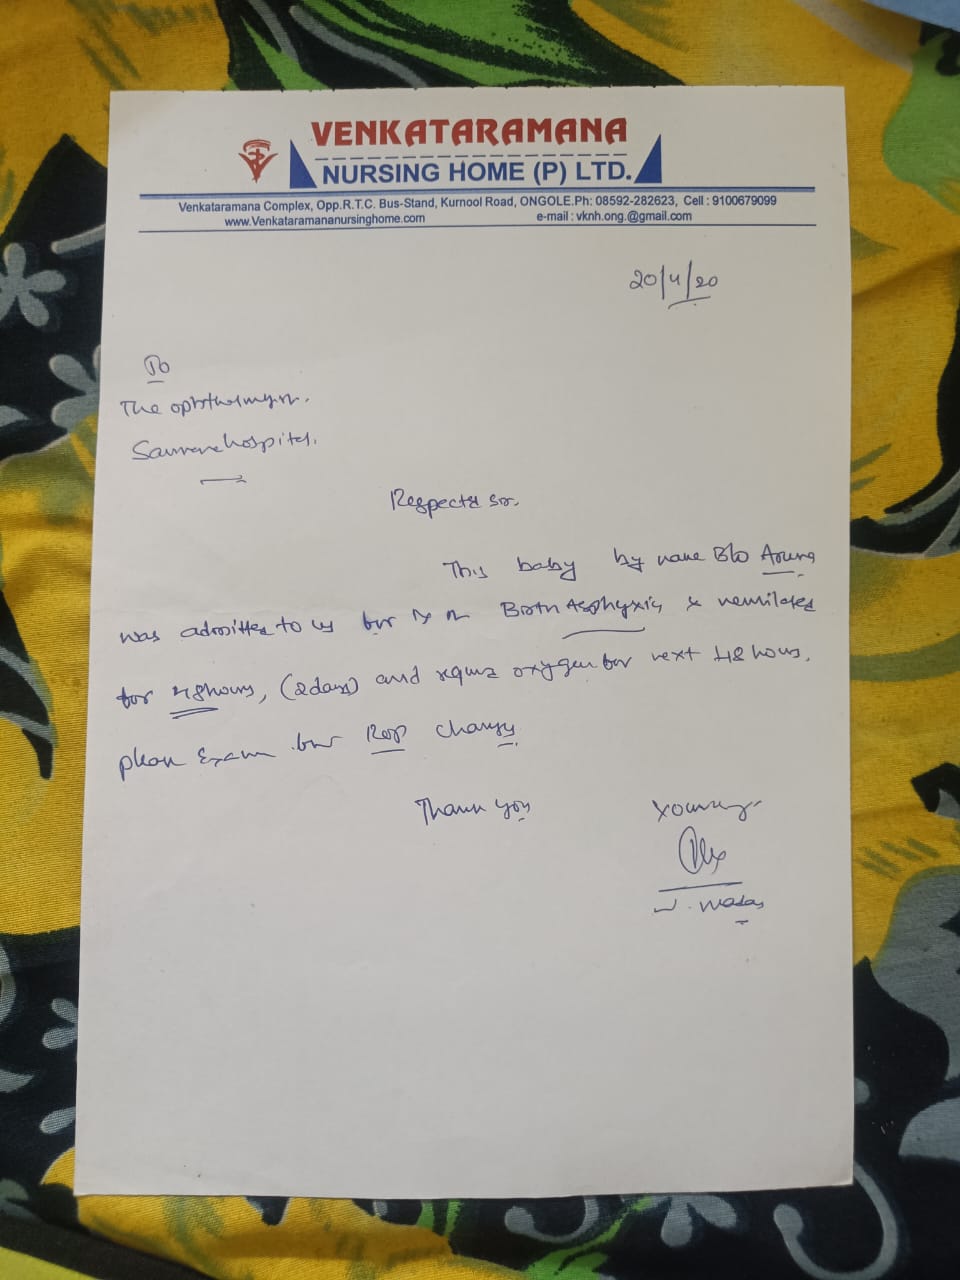 VENKATARAMANA
NURSING HOME (P) LTD.
Venkataramana Complex, Opp.R.T.C. Bus-Stand, Kurnool Road, ONGOLE.Ph: 08592-282623, Cell : 9100679099
www.Venkataramananursinghome.com e-mail : vknh.ong.@gmail.com
20/4/20
To
The
hospital.
Respected Sir.
This baby by name B/o Aruna
was admitted to us for Rx of Birth Asphyxia & ventilated
for 48 hours, (2 days) and require oxygen for next 48 hours.
please Exam for ROP changes.
Thank you